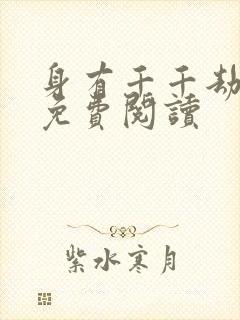 身有千千劫
免費閱讀
紫水寒月